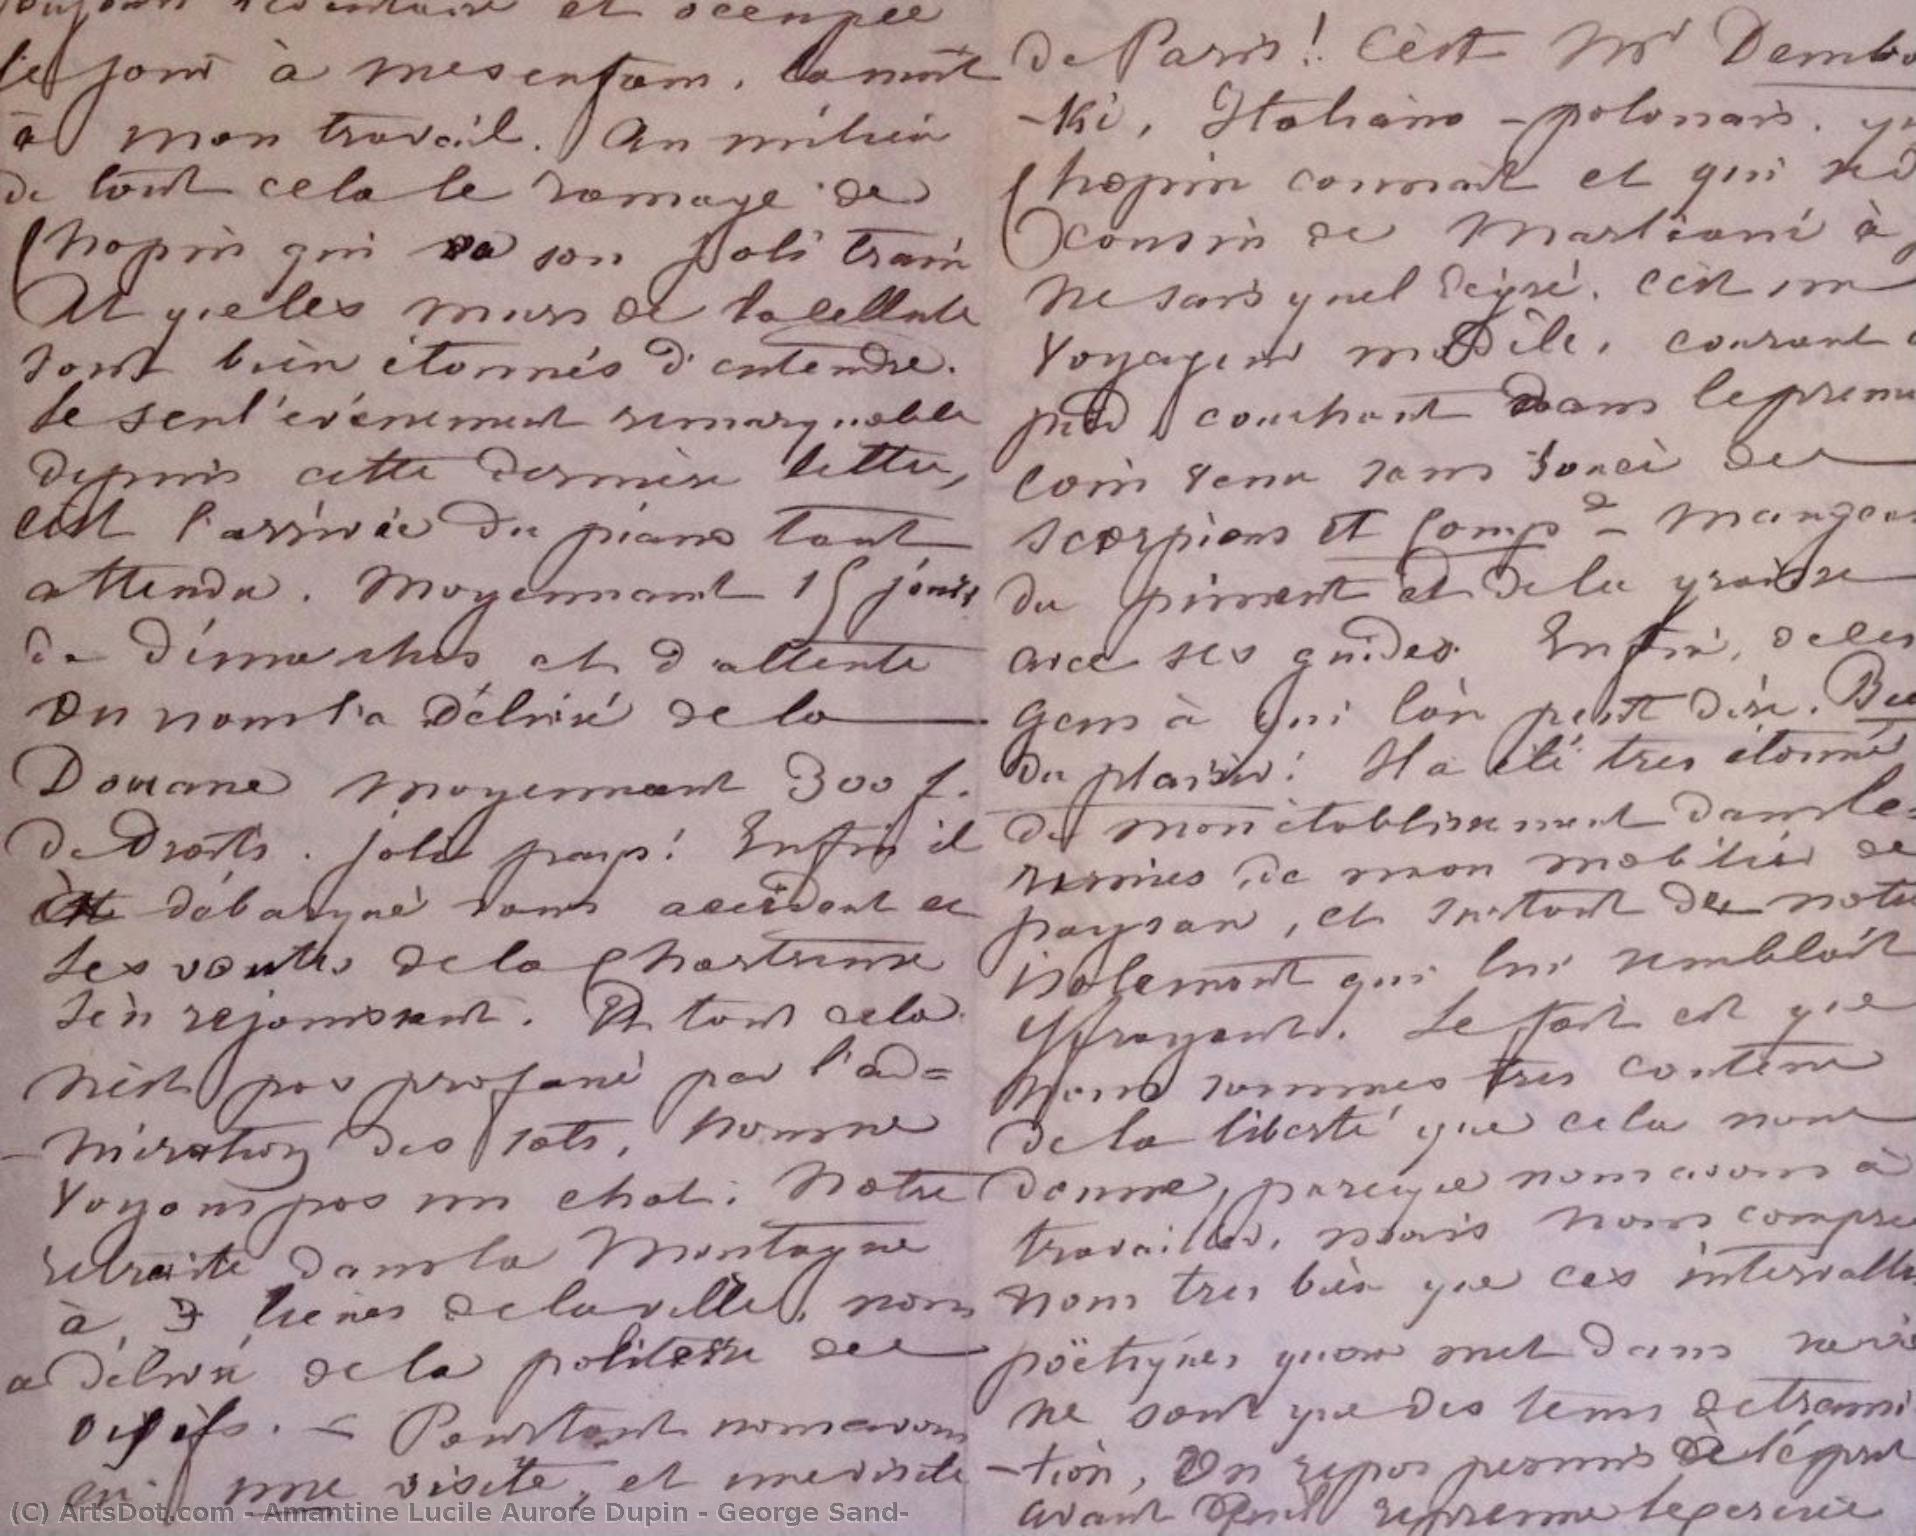 toujours sédentaire et occupée
le jour à mes enfans, la nuit
à mon travail. Au milieu
de tout cela le ramage de
Chopin qui va son joli train
Et que les murs de la cellule
sont bien étonnés d'entendre.
Le seul évènement remarquable
depuis cette dernière lettre,
c'est l'arrivée du piano tant
attendu. Moyennant 15 jours
de démarches et d'attente
on nous l'a délivré de la
Douane moyennant 300 f.
de Droits. joli pays! Enfin il
est débarqué sans accident et
les voutes de la Chartreuse
s'en rejouissent. Et tout cela
n'est pas profané par l'ad=
-miration des sots, nous ne
voyons pas un chat. Notre
retraite dans la Montagne
à 3 lieues de la ville, nous
a délivré de la politesse des
oisifs. – Pourtant nous avons
eu une visite, et une visite
de Paris! C'est Mr Dembo
-ki, Italiano-polonais, qu
Chopin connait et qui se d
cousin de Marliani à j
ne sais quel dégré. C'est un
voyageur modèle, courant à
pied, couchant dans le premi
coin venu sans souci des
scorpions et Compe – Mangeant
du piment et de la graisse
avec ses guides. Enfin, de ces
Gens à qui l'on peut dire. Bea
du plaisir! Il a été tres étonné
de mon établissement dans les
ruines, de mon mobilier de
paysan, et surtout de notre
isolement qui lui semblait
effrayant. Le fait est que
nous sommes tres contens
de la liberté que cela nous
donne, parceque nous avons à
travailler, mais nous compre
nous tres bien que ces intervalles
poëtiques qu'on met dans sa vie
ne sont que des tems de transi
-tion, un repos permis à l'esprit
avant qu'il reprenne l'exercice
(C) ArtsDot.com - Amantine Lucile Aurore Dupin - George Sand-